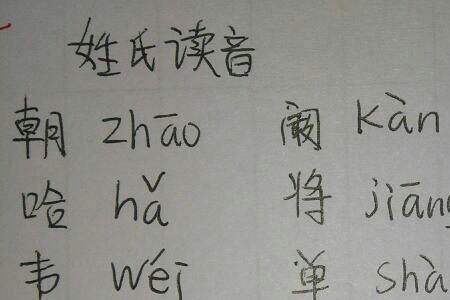 姓氏读音
朝 zhāo 阚 kàn
哈 hǎ 将 jiāng
韦 wéi 单 shà